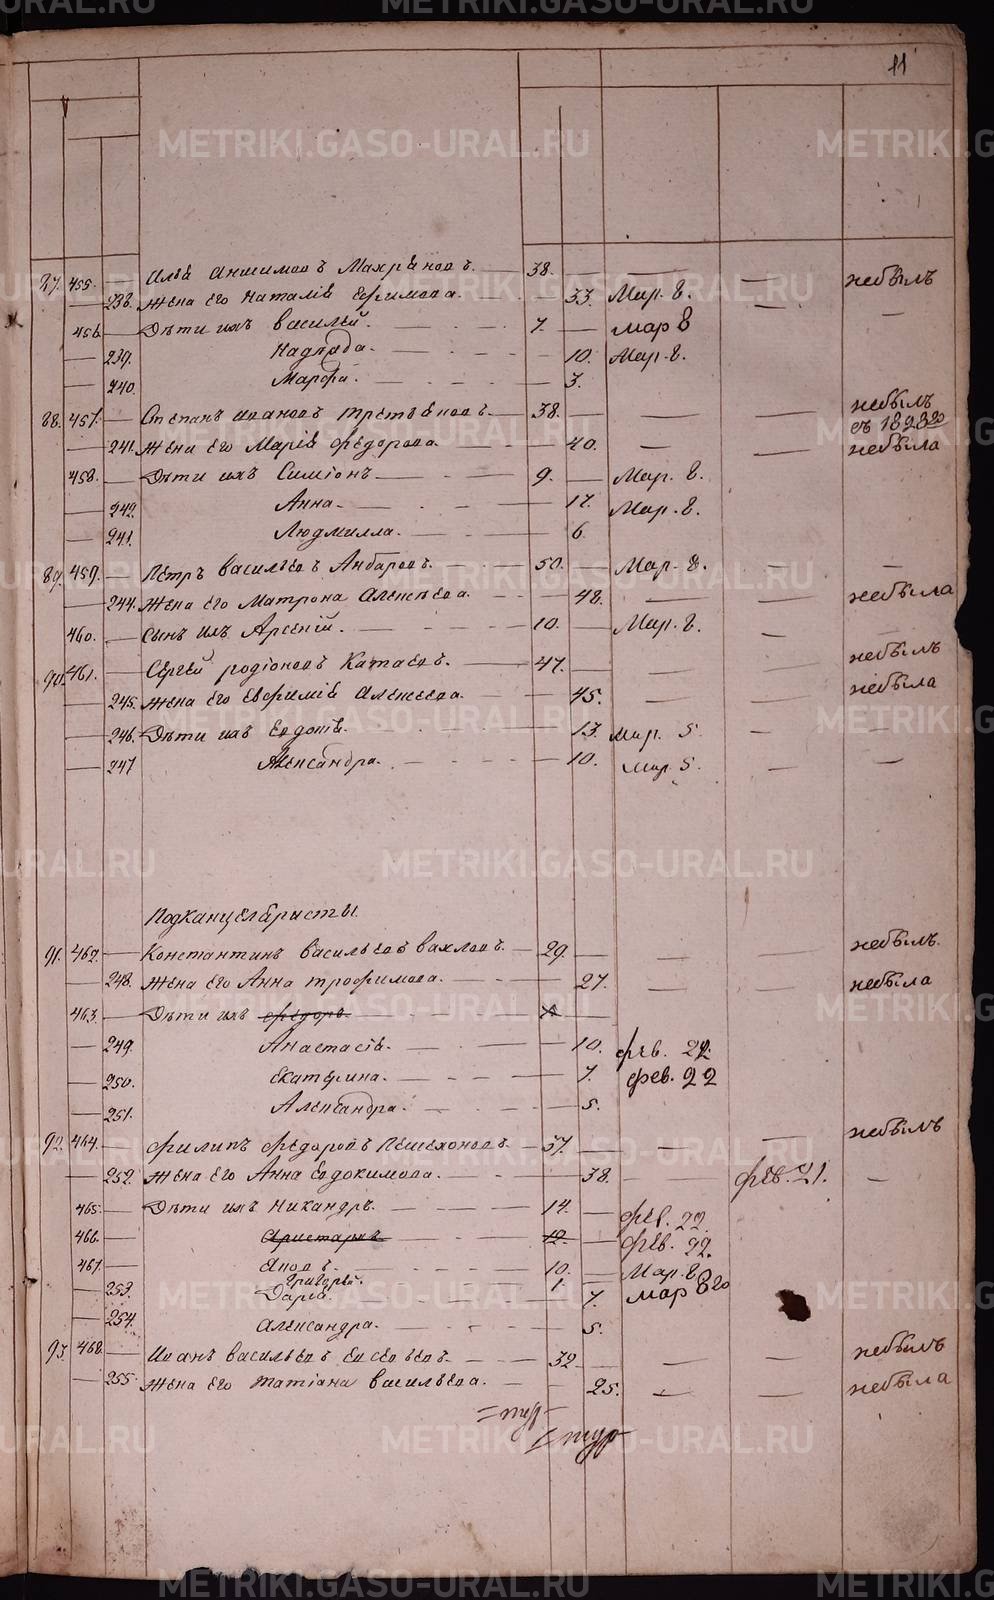 11
87. 455. — Илья Анисимовъ Махряновъ. — 38. — — — небылъ
— 238. Жена его Наталія Ефимова. — — 33. Мар. 8. — —
456. — Дѣти ихъ Василей. — — 7. — мар 8 —
— 239. Надѣжда. — — 10. Мар. 8.
— 240. Марфа. — — 3.
88. 457. — Степанъ Ивановъ Третьяковъ. — 38. — — — небылъ съ 1823го
— 241. Жена его Марія Федорова. — — 40. — — небыла
458. — Дѣти ихъ Симіонъ — — 9. — Мар. 8.
— 242. Анна. — — 17. Мар. 8.
— 241. Людмилла. — — 6.
89. 459. — Петръ Васильевъ Анбаровъ. — 50. — Мар. 8. — —
— 244. Жена его Матрона Алексѣева. — — 48. — — небыла
460. — Сынъ ихъ Арсеній. — — 10. — Мар. 8. —
90. 461. — Сергѣй Родіоновъ Катаевъ. — 47. — — — небылъ
— 245. Жена его Евфимія Алексеева. — — 45. — — небыла
— 246. Дѣти ихъ Евдокія. — — 13. мар. 5. — —
— 247 Александра. — — 10. мар. 5. — —
Подканцеляристы.
91. 462. — Константинъ Васильевъ Вахловъ. — 29. — — — небылъ.
— 248. Жена его Анна Трофимова. — — 27. — — небыла
463. — Дѣти ихъ Федоръ. — —
— 249. Анастасія. — — 10. фев. 22.
— 250. Екатерина. — — 7. фев. 22
— 251. Александра. — — 5.
92. 464. — Филипъ Федоровъ Пешехоновъ. — 37. — — — небылъ
— 252. Жена его Анна Евдокимова. — — 38. — фев. 21. —
465. — Дѣти ихъ Никандръ. — 14. — фев. 22.
466. — Аристархъ — 12. — фев. 22.
467. — Яковъ. — 10. — Мар. 8
Григорей. 1.
— 253. Дарья. — — 7. мар 8го
— 254. Александра. — — 5.
93. 468. — Иванъ Васильевъ Евсевьевъ. — 32. — — — небылъ
— 255. Жена его Татіана Васильева. — — 25. — — небыла